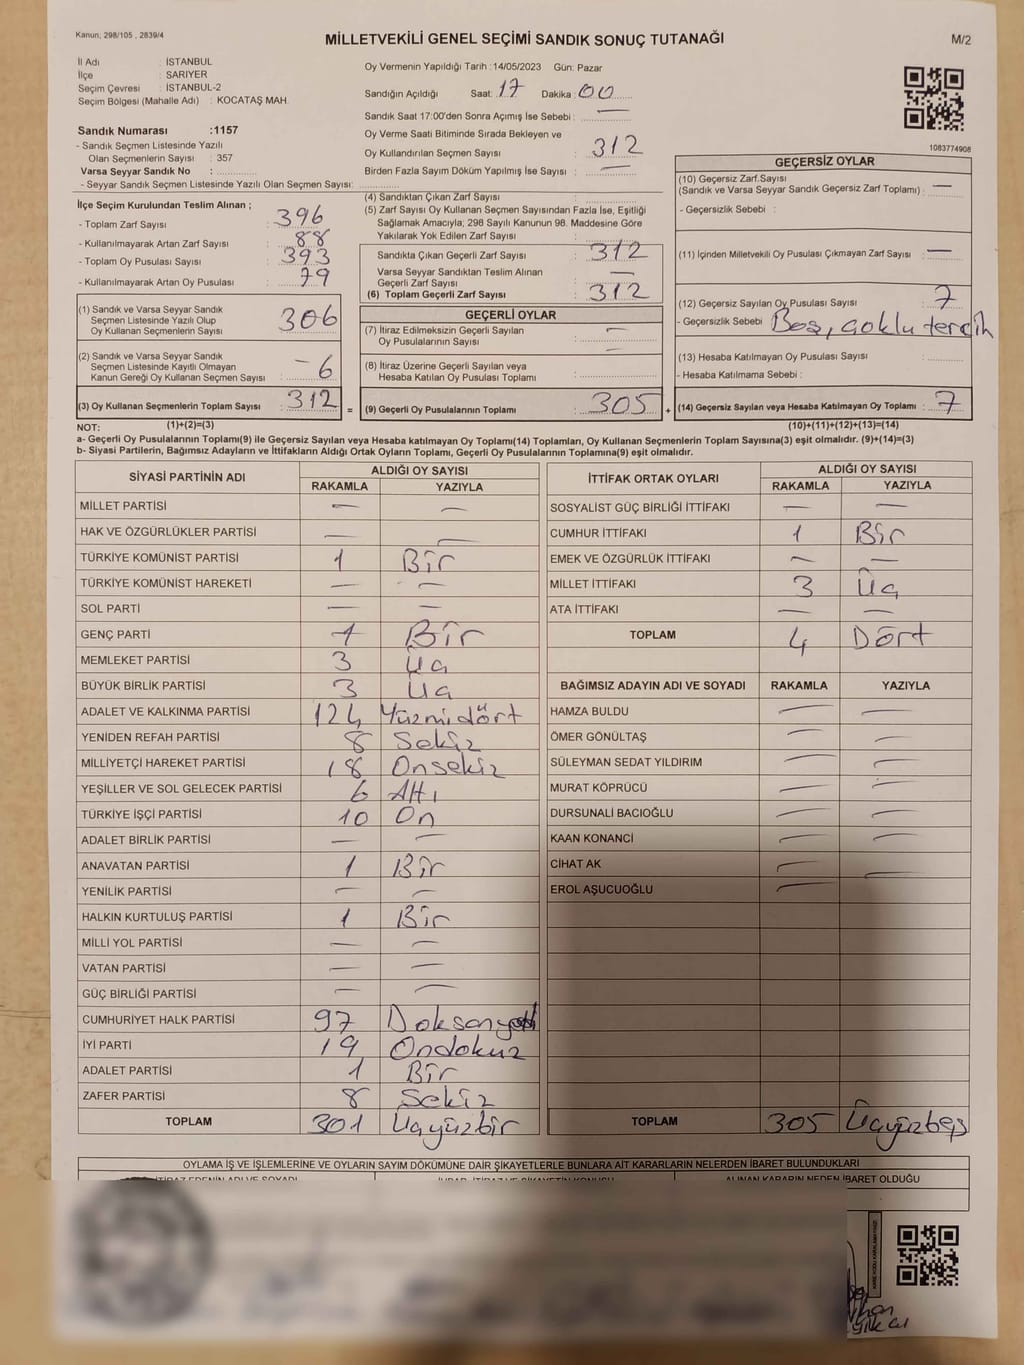 Kanun, 298/105 , 2839/4
MİLLETVEKİLİ GENEL SEÇİMİ SANDIK SONUÇ TUTANAĞI
M/2
İl Adı : İSTANBUL
İlçe : SARIYER
Seçim Çevresi : İSTANBUL-2
Seçim Bölgesi (Mahalle Adı) : KOCATAŞ MAH.
Sandık Numarası :1157
- Sandık Seçmen Listesinde Yazılı
Olan Seçmenlerin Sayısı : 357
Varsa Seyyar Sandık No :
- Seyyar Sandık Seçmen Listesinde Yazılı Olan Seçmen Sayısı:
Oy Vermenin Yapıldığı Tarih :14/05/2023 Gün: Pazar
Sandığın Açıldığı Saat: 17 Dakika : 00
Sandık Saat 17:00'den Sonra Açımış İse Sebebi : —
Oy Verme Saati Bitiminde Sırada Bekleyen ve
Oy Kullandırılan Seçmen Sayısı : 312
Birden Fazla Sayım Döküm Yapılmış İse Sayısı : —
1083774908
İlçe Seçim Kurulundan Teslim Alınan ;
- Toplam Zarf Sayısı : 396
- Kullanılmayarak Artan Zarf Sayısı : 88
- Toplam Oy Pusulası Sayısı : 393
- Kullanılmayarak Artan Oy Pusulası : 79
(1) Sandık ve Varsa Seyyar Sandık
Seçmen Listesinde Yazılı Olup
Oy Kullanan Seçmenlerin Sayısı : 306
(2) Sandık ve Varsa Seyyar Sandık
Seçmen Listesinde Kayıtlı Olmayan
Kanun Gereği Oy Kullanan Seçmen Sayısı : – 6
(3) Oy Kullanan Seçmenlerin Toplam Sayısı : 312 =
(4) Sandıktan Çıkan Zarf Sayısı :
(5) Zarf Sayısı Oy Kullanan Seçmen Sayısından Fazla İse, Eşitliği
Sağlamak Amacıyla; 298 Sayılı Kanunun 98. Maddesine Göre
Yakılarak Yok Edilen Zarf Sayısı :
Sandıkta Çıkan Geçerli Zarf Sayısı : 312
Varsa Seyyar Sandıktan Teslim Alınan
Geçerli Zarf Sayısı : —
(6) Toplam Geçerli Zarf Sayısı : 312
GEÇERLİ OYLAR
(7) İtiraz Edilmeksizin Geçerli Sayılan
Oy Pusulalarının Sayısı : —
(8) İtiraz Üzerine Geçerli Sayılan veya
Hesaba Katılan Oy Pusulası Toplamı : —
(9) Geçerli Oy Pusulalarının Toplamı : 305 +
GEÇERSİZ OYLAR
(10) Geçersiz Zarf.Sayısı
(Sandık ve Varsa Seyyar Sandık Geçersiz Zarf Toplamı) : —
- Geçersizlik Sebebi :
(11) İçinden Milletvekili Oy Pusulası Çıkmayan Zarf Sayısı : —
(12) Geçersiz Sayılan Oy Pusulası Sayısı : 7
- Geçersizlik Sebebi : Boş, çoklu tercih
(13) Hesaba Katılmayan Oy Pusulası Sayısı :
- Hesaba Katılmama Sebebi :
(14) Geçersiz Sayılan veya Hesaba Katılmayan Oy Toplamı : 7
NOT: (1)+(2)=(3) (10)+(11)+(12)+(13)=(14)
a- Geçerli Oy Pusulalarının Toplamı(9) ile Geçersiz Sayılan veya Hesaba katılmayan Oy Toplamı(14) Toplamları, Oy Kullanan Seçmenlerin Toplam Sayısına(3) eşit olmalıdır. (9)+(14)=(3)
b- Siyasi Partilerin, Bağımsız Adayların ve İttifakların Aldığı Ortak Oyların Toplamı, Geçerli Oy Pusulalarının Toplamına(9) eşit olmalıdır.
SİYASİ PARTİNİN ADI ALDIĞI OY SAYISI
RAKAMLA YAZIYLA
MİLLET PARTİSİ — —
HAK VE ÖZGÜRLÜKLER PARTİSİ — —
TÜRKİYE KOMÜNİST PARTİSİ 1 Bir
TÜRKİYE KOMÜNİST HAREKETİ — —
SOL PARTİ — —
GENÇ PARTİ 1 Bir
MEMLEKET PARTİSİ 3 Üç
BÜYÜK BİRLİK PARTİSİ 3 Üç
ADALET VE KALKINMA PARTİSİ 124 Yüzmidört
YENİDEN REFAH PARTİSİ 8 Sekiz
MİLLİYETÇİ HAREKET PARTİSİ 18 Onsekiz
YEŞİLLER VE SOL GELECEK PARTİSİ 6 Altı
TÜRKİYE İŞÇİ PARTİSİ 10 On
ADALET BİRLİK PARTİSİ — —
ANAVATAN PARTİSİ 1 Bir
YENİLİK PARTİSİ — —
HALKIN KURTULUŞ PARTİSİ 1 Bir
MİLLİ YOL PARTİSİ — —
VATAN PARTİSİ — —
GÜÇ BİRLİĞİ PARTİSİ — —
CUMHURİYET HALK PARTİSİ 97 Doksanyedi
İYİ PARTİ 19 Ondokuz
ADALET PARTİSİ 1 Bir
ZAFER PARTİSİ 8 Sekiz
TOPLAM 301 Üçyüzbir
İTTİFAK ORTAK OYLARI ALDIĞI OY SAYISI
RAKAMLA YAZIYLA
SOSYALİST GÜÇ BİRLİĞİ İTTİFAKI — —
CUMHUR İTTİFAKI 1 Bir
EMEK VE ÖZGÜRLÜK İTTİFAKI — —
MİLLET İTTİFAKI 3 Üç
ATA İTTİFAKI — —
TOPLAM 4 Dört
BAĞIMSIZ ADAYIN ADI VE SOYADI RAKAMLA YAZIYLA
HAMZA BULDU — —
ÖMER GÖNÜLTAŞ — —
SÜLEYMAN SEDAT YILDIRIM — —
MURAT KÖPRÜCÜ — —
DURSUNALİ BACIOĞLU — —
KAAN KONANCİ — —
CİHAT AK — —
EROL AŞUCUOĞLU —
TOPLAM 305 Üçyüzbeş
OYLAMA İŞ VE İŞLEMLERİNE VE OYLARIN SAYIM DÖKÜMÜNE DAİR ŞİKAYETLERLE BUNLARA AİT KARARLARIN NELERDEN İBARET BULUNDUKLARI
İTİRAZ EDENİN ADI VE SOYADI ALINAN KARARIN NEDEN İBARET OLDUĞU